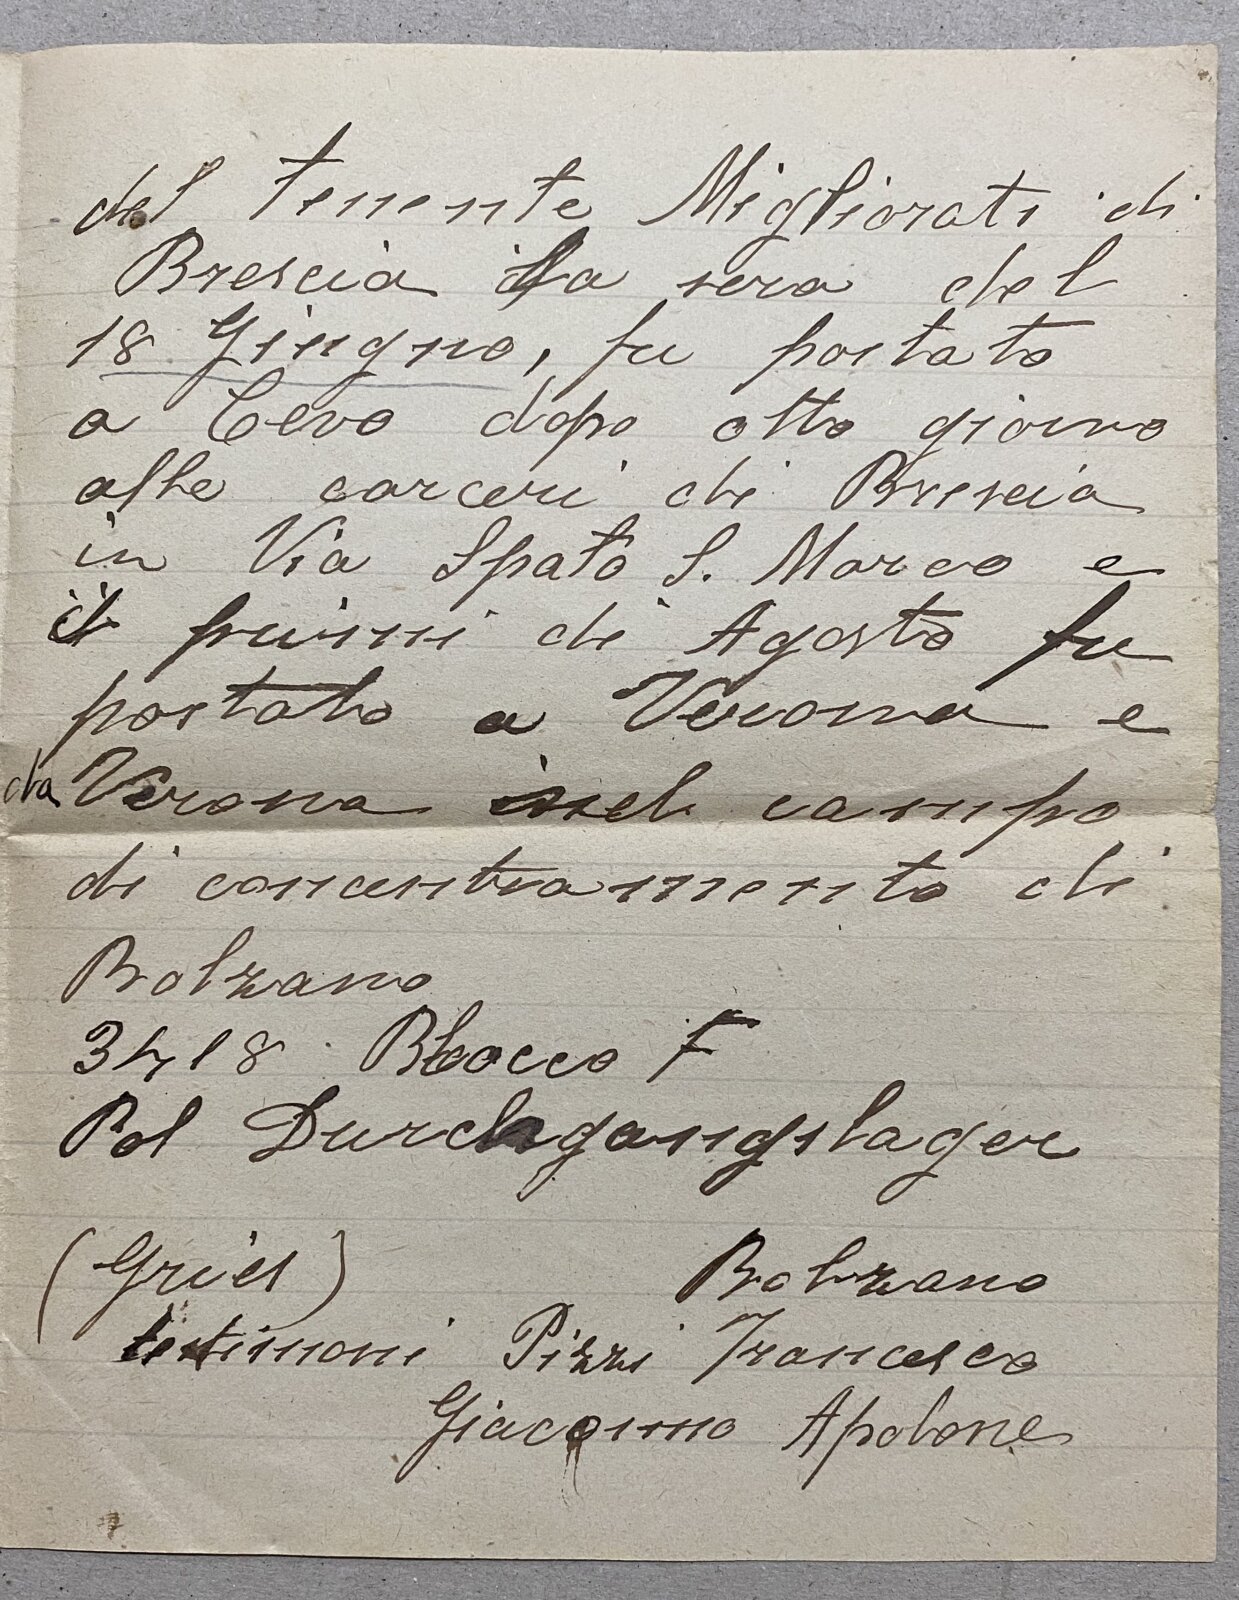 del tenente Migliorati di
Brescia la sera del
18 Giugno, fu portato
a Cevo dopo otto giorno
alle carceri di Brescia
in Via Spalto S. Marco e
i primi di Agosto fu
portato a Verona e
da Verona nel campo
di concentramento di
Bolzano
3418 Blocco F
Pol Durchgangslager
(Gries) Bolzano
testimoni Pizzi Francesco
Giacomo Apolone